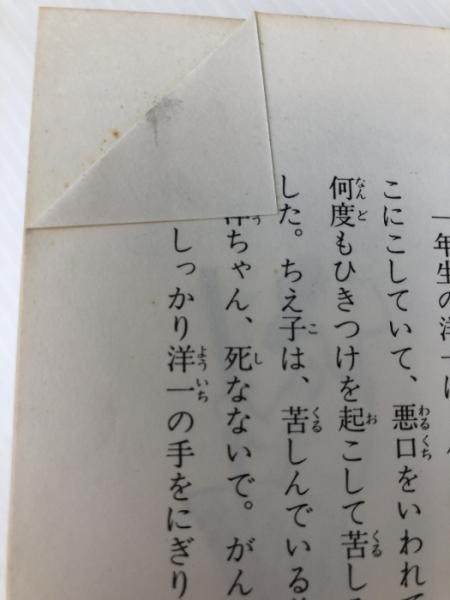 一年生の洋一は
こにこしていて、悪口をいわれて
何度もひきつけを起こして苦し
した。ちえ子は、苦しんでいる
ちゃん、死なないで。がん
しっかり洋一の手をにぎり